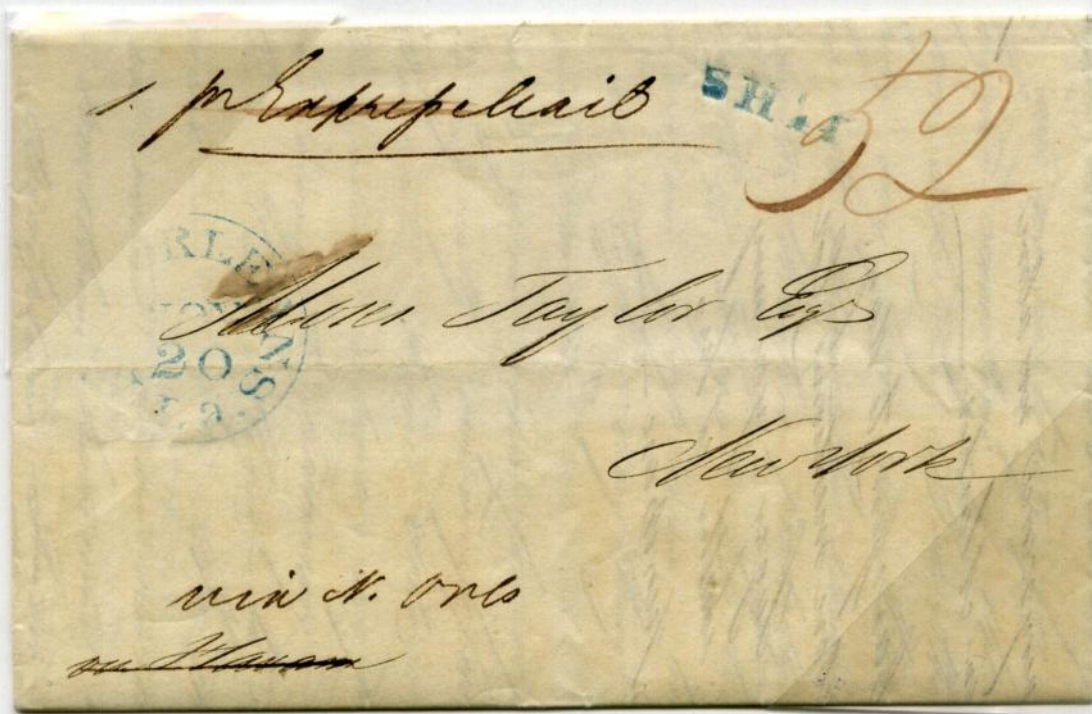 pr Express Mail
SHIP
52
ORLEANS
NOV
20
LA.
Moses Taylor Esqr
New York
via N. Orls
via Havana